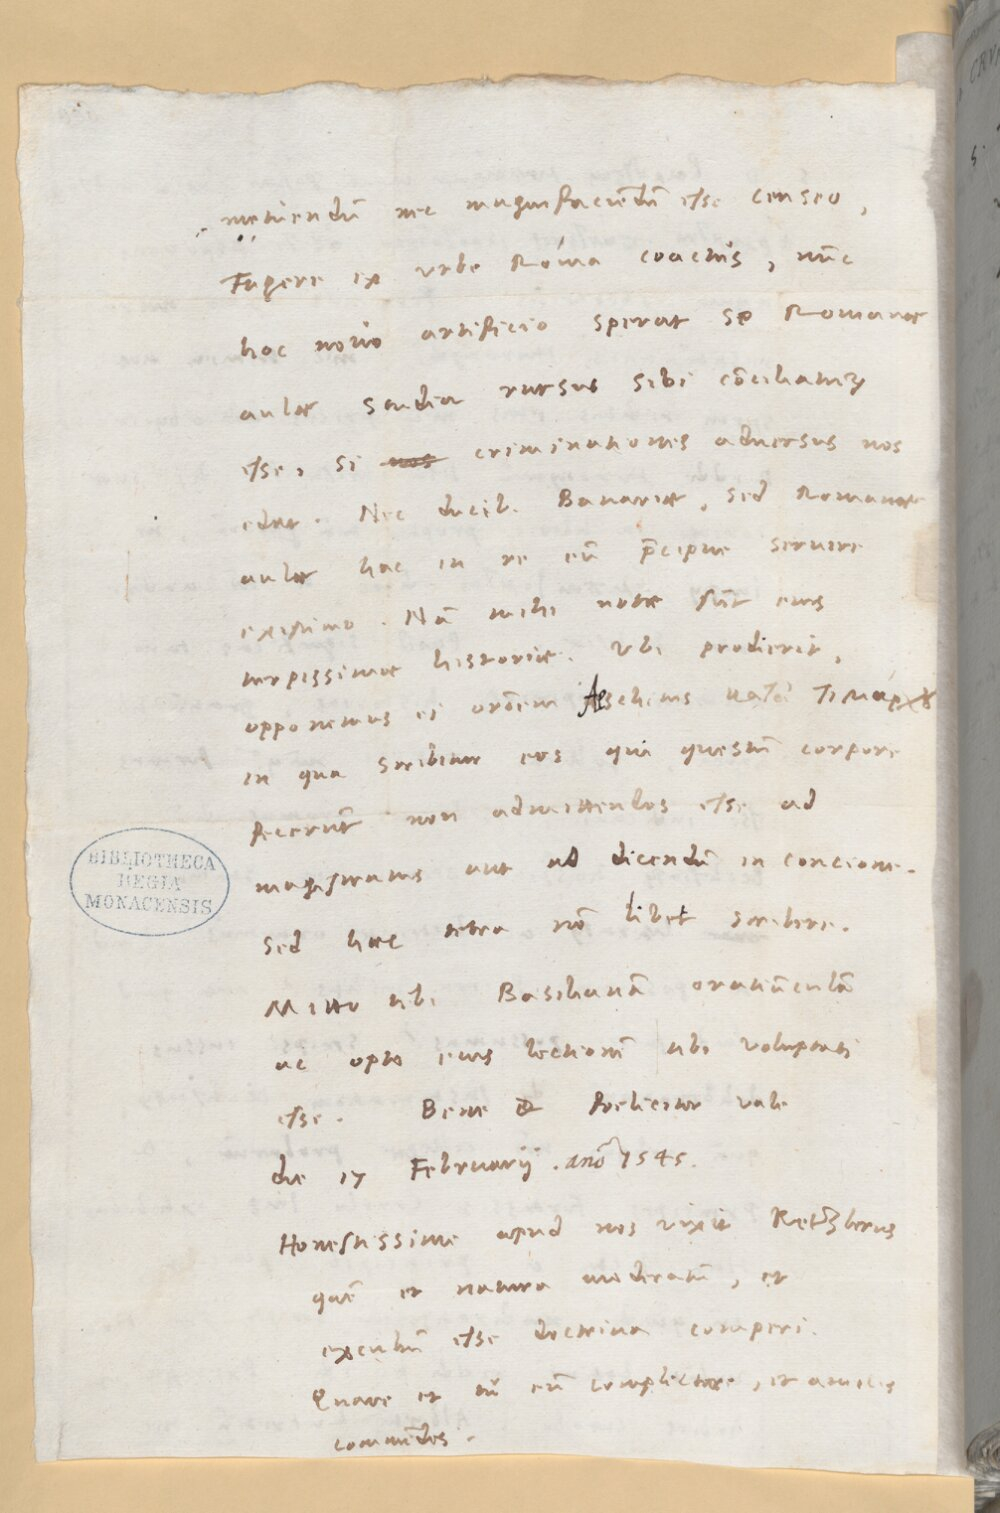 metuendū nec magnifaciēdū esse censeo,
Fugere ex urbe Roma coactus, nūc
hac nouo artificio sperat se Romanae
aulae studia rursus sibi cōciliaturū
esse, si nos criminationes aduersus nos
edat. Nec ducib. Bauariae, sed Romanae
aulae hac in re eū p̄cipue seruire
existimo. Nā mihi notae sūt eius
turpissimae historiae. Vbi prodierit,
opponemus ei orōem Aeschinis κατὰ Τιμάρχου
in qua scribitur eos qui questū corpore
fecerūt non admittendos esse ad
magistratus aut ad dicendū in concione.
Sed haec tetra nō libet scribere.
Mitto tibi Basilianā oratiūculā
ac opto eius lectionē tibi voluptati
esse. Bene & foeliciter vale
die 17 Februarij. anō 1545.
Honestissime apud nos vixit
quē et natura moderatū, et
excultū esse doctrina comperi.
Quare et tu eū complectare, et amicis
commēdes.
BIBLIOTHECA
REGIA
MONACENSIS